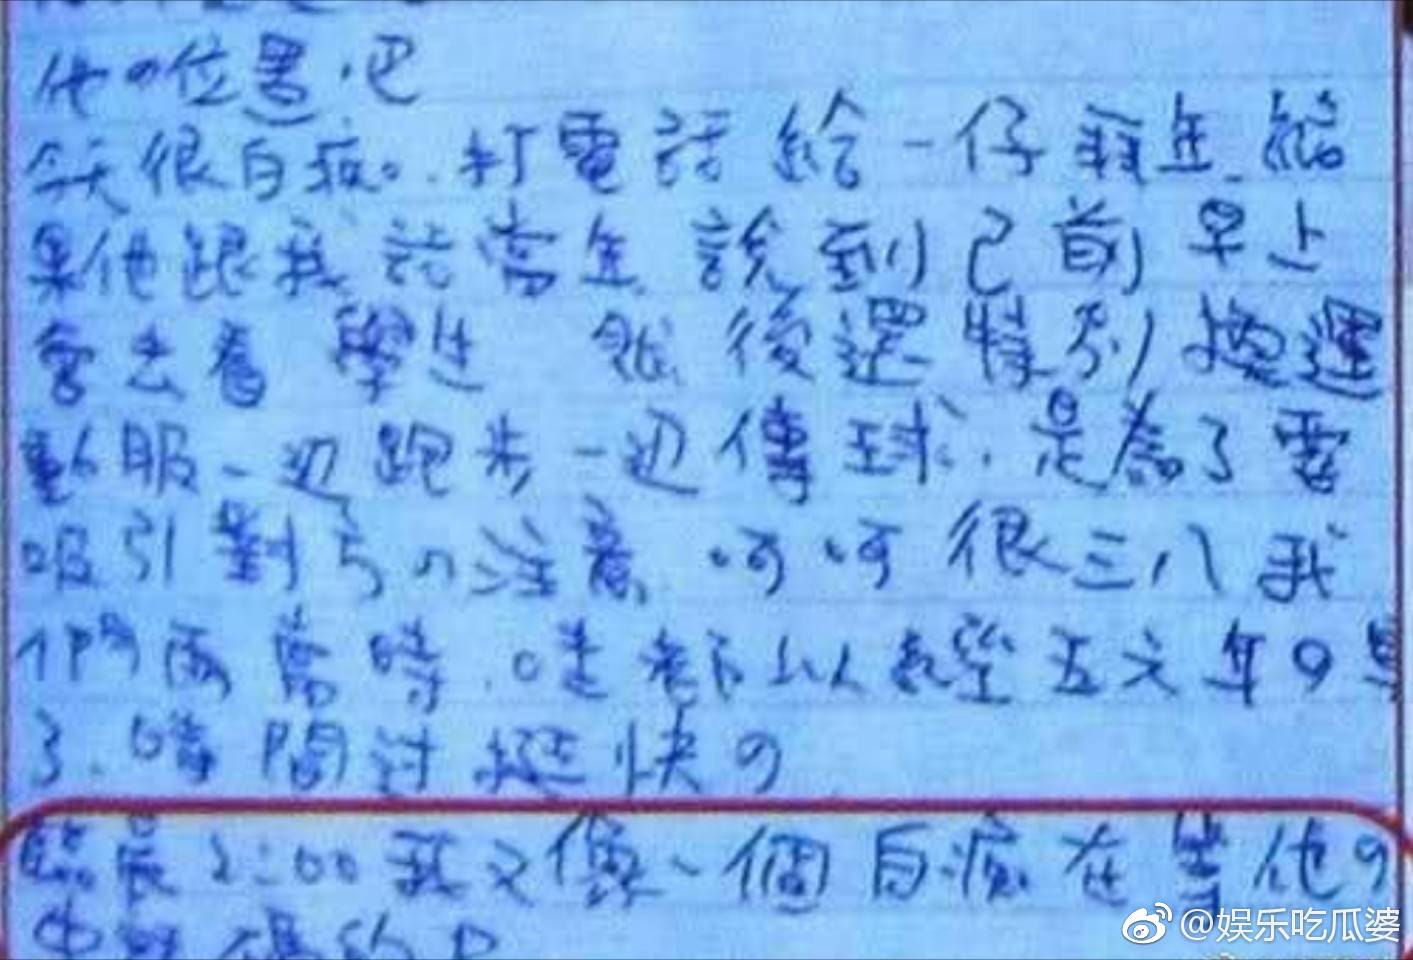 他の位置吧
今天很白痴。打電話給一仔 結
果他跟我話當年 說到己前早上
會去看學生 然後還特別換運
動服一边跑步一边傳球，是為了要
吸引對方の注意 呵呵 很三八 我
們兩當時。哇 都以經五六年の事
了，時間过挺快の
臨晨2:00我又像一個白痴在等他の
@娱乐吃瓜婆